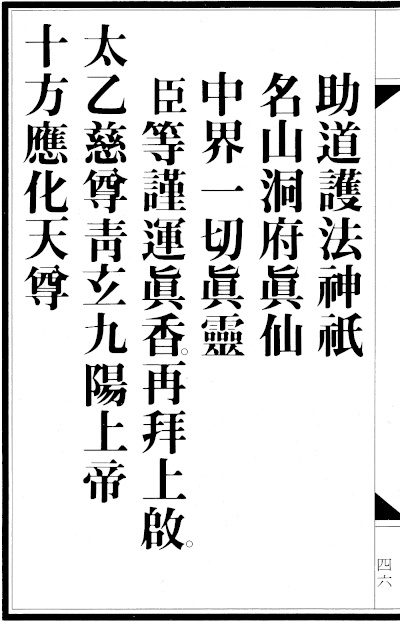 助道護法神祇
名山洞府眞仙
中界一切眞靈
臣等謹運眞香。再拜上啟。
太乙慈尊靑玄九陽上帝
十方應化天尊
四六